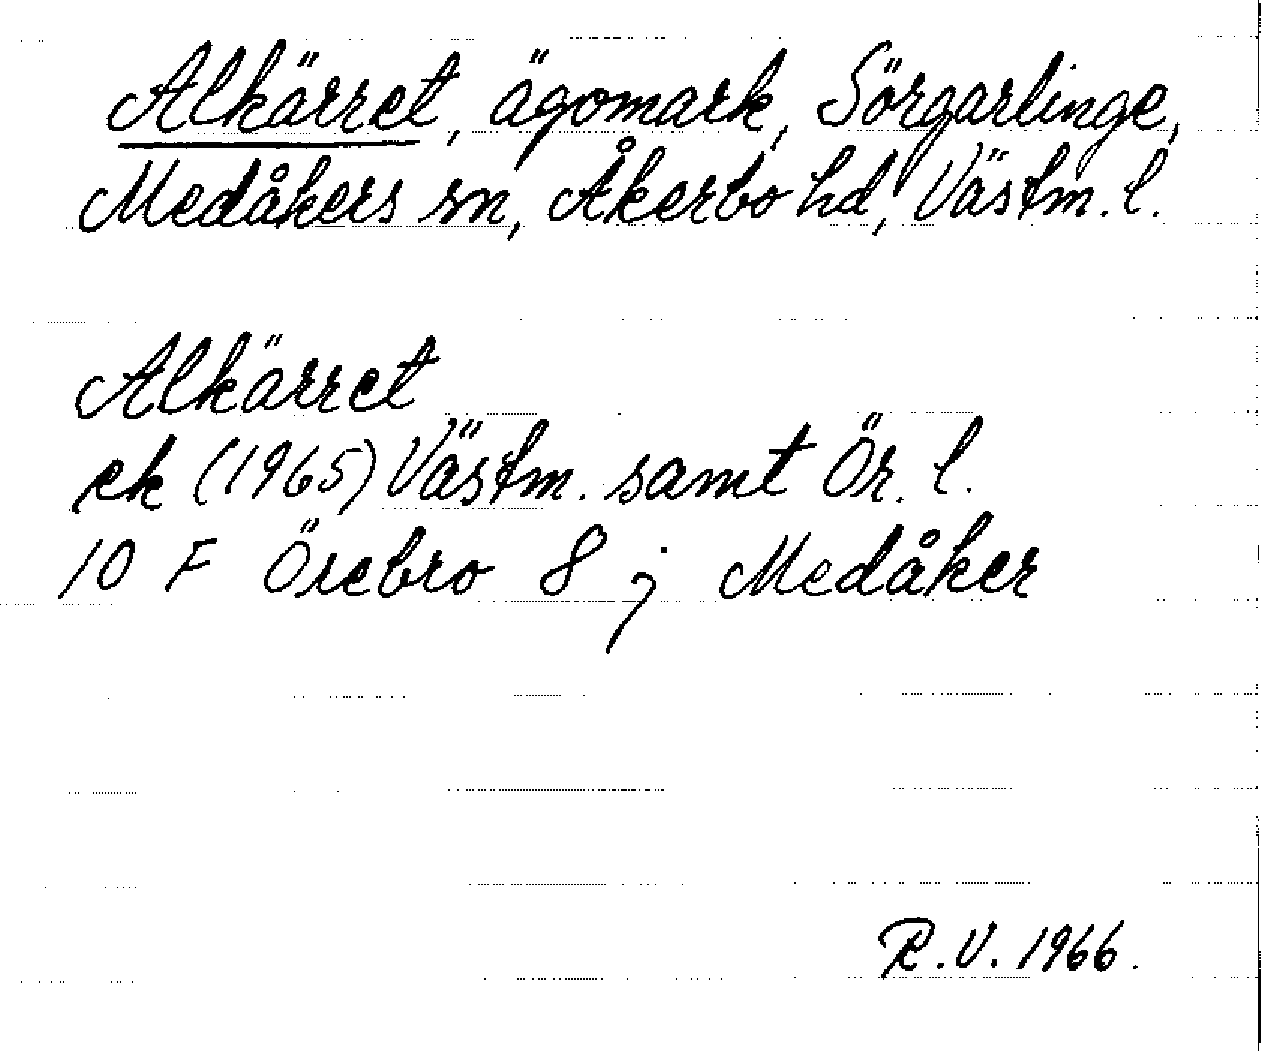 Alkärret, ägomark, Sörgarlinge,
Medåkers sn, Åkerbo hd, Västm. l.
Alkärret
ek (1965) Västm. samt Ör. l.
10 F Örebro 8 j Medåker
R.V. 1966.